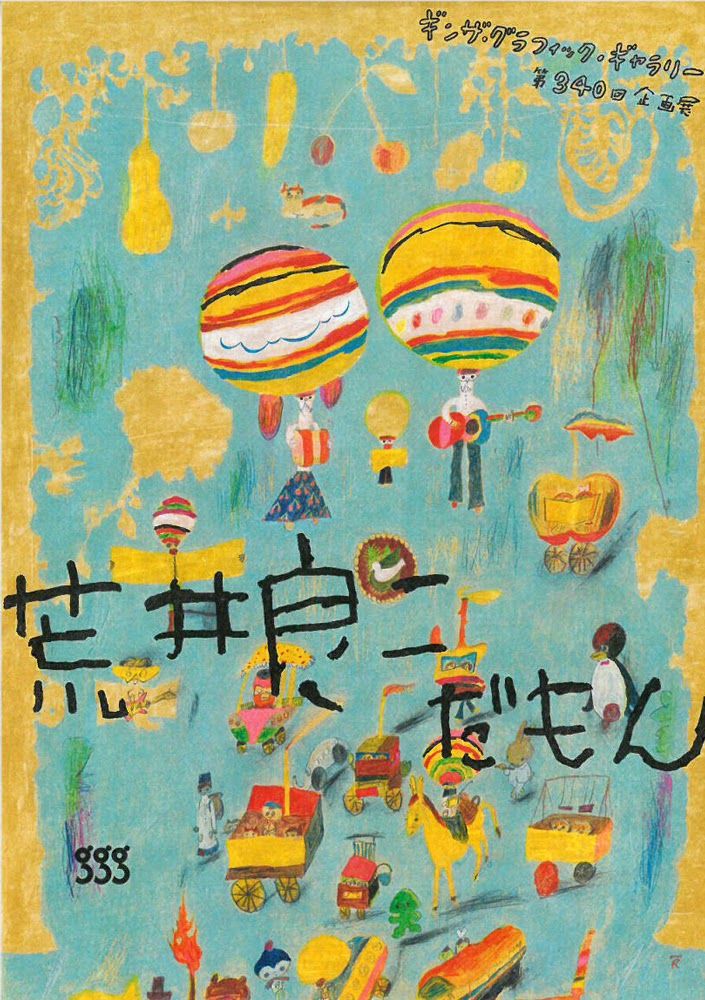 ギンザ・グラフィック・ギャラリー
第340回企画展
荒井良二
だもん
ggg
R